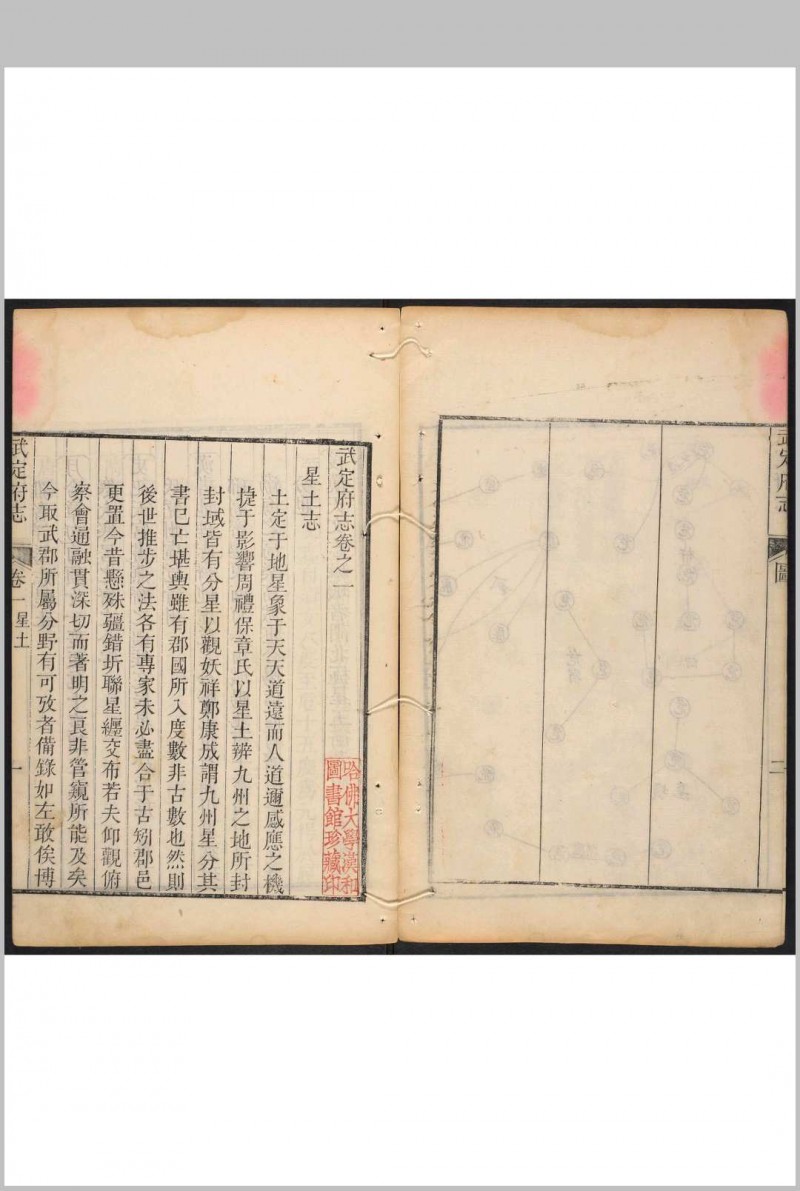 武定府志
圖
二
武定府志卷之一
星土志
土定于地星象于天天道遠而人道邇感應之機
捷于影響周禮保章氏以星土辨九州之地所封
封域皆有分星以觀妖祥鄭康成謂九州星分其
書已亡堪輿雖有郡國所入度數非古數也然則
後世推步之法各有專家未必盡合于古矧郡邑
更置今昔懸殊疆錯圻聯星纏交布若夫仰觀俯
察會通融貫深切而著明之良非管窺所能及矣
今取武郡所屬分野有可攷者備錄如左敢俟博
武定府志
卷一
星土
一
哈佛大學漢和
圖書館珍藏印